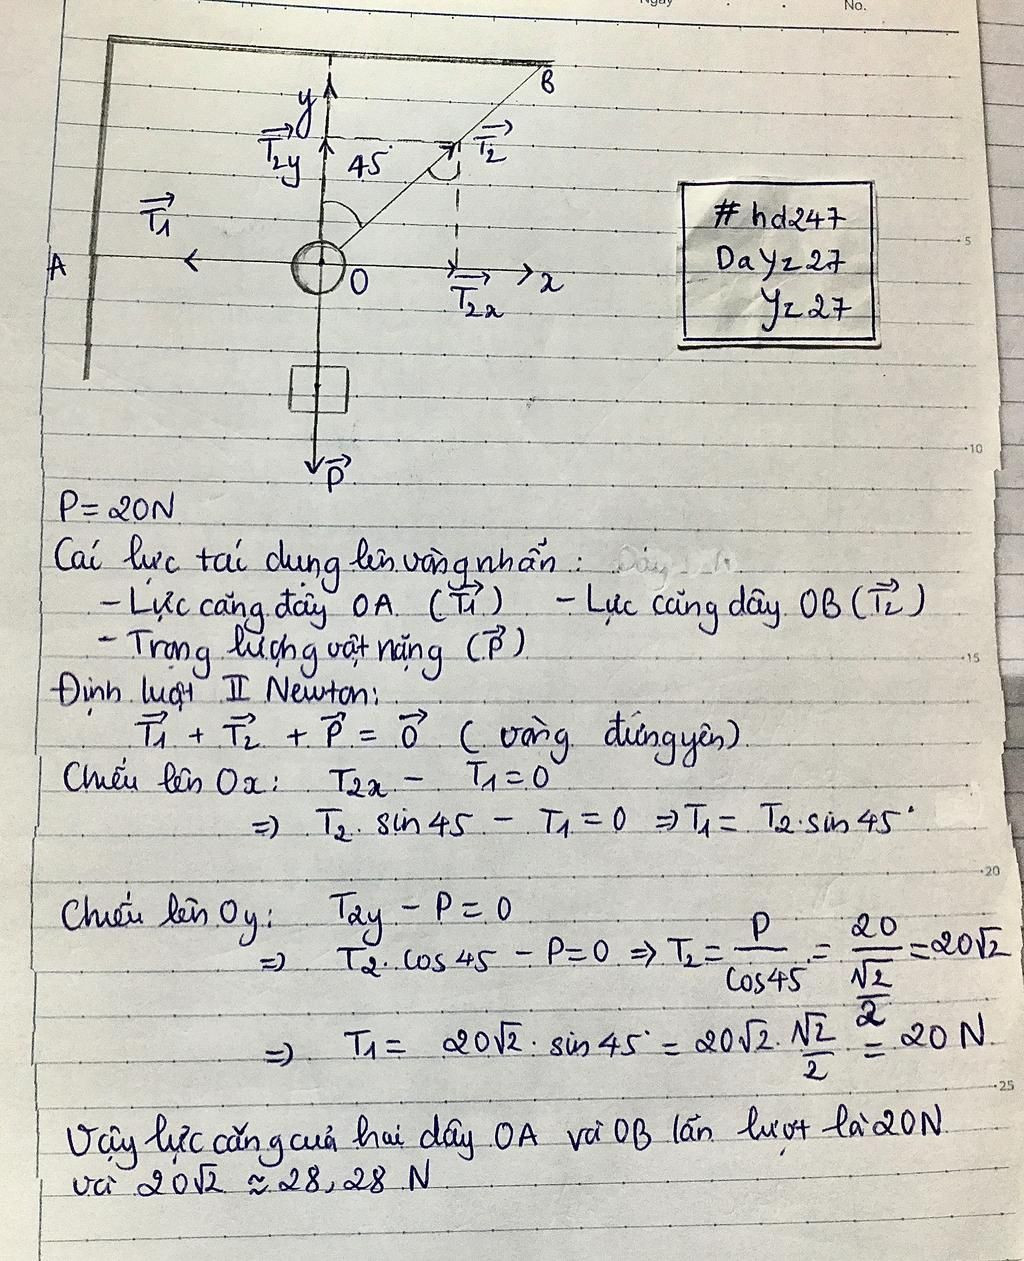 Ngày
No.
B
y
T₂y
45°
T₂
T₁
A
O
x
T₂x
P
# hd247
Dayz27
Yz27
5
10
15
20
25
P = 20N
Cái lực tái dụng lên vòng nhẫn :
- Lực căng dây OA (T₁) - Lực căng dây OB (T₂)
- Trọng lượng vật nặng (P)
Định luật II Newton:
T₁ + T₂ + P = 0 ( vòng đứng yên)
Chiếu lên Ox: T₂x - T₁ = 0
=> T₂ . sin 45 - T₁ = 0 => T₁ = T₂ . sin 45°
Chiếu lên Oy: T₂y - P = 0
=> T₂ . cos 45 - P = 0 => T₂ = P/cos45 = 20/(√2/2) = 20√2
=> T₁ = 20√2 . sin 45° = 20√2 . √2/2 = 20 N
Vậy lực căng của hai dây OA và OB lần lượt là 20N
và 20√2 ≈ 28,28 N